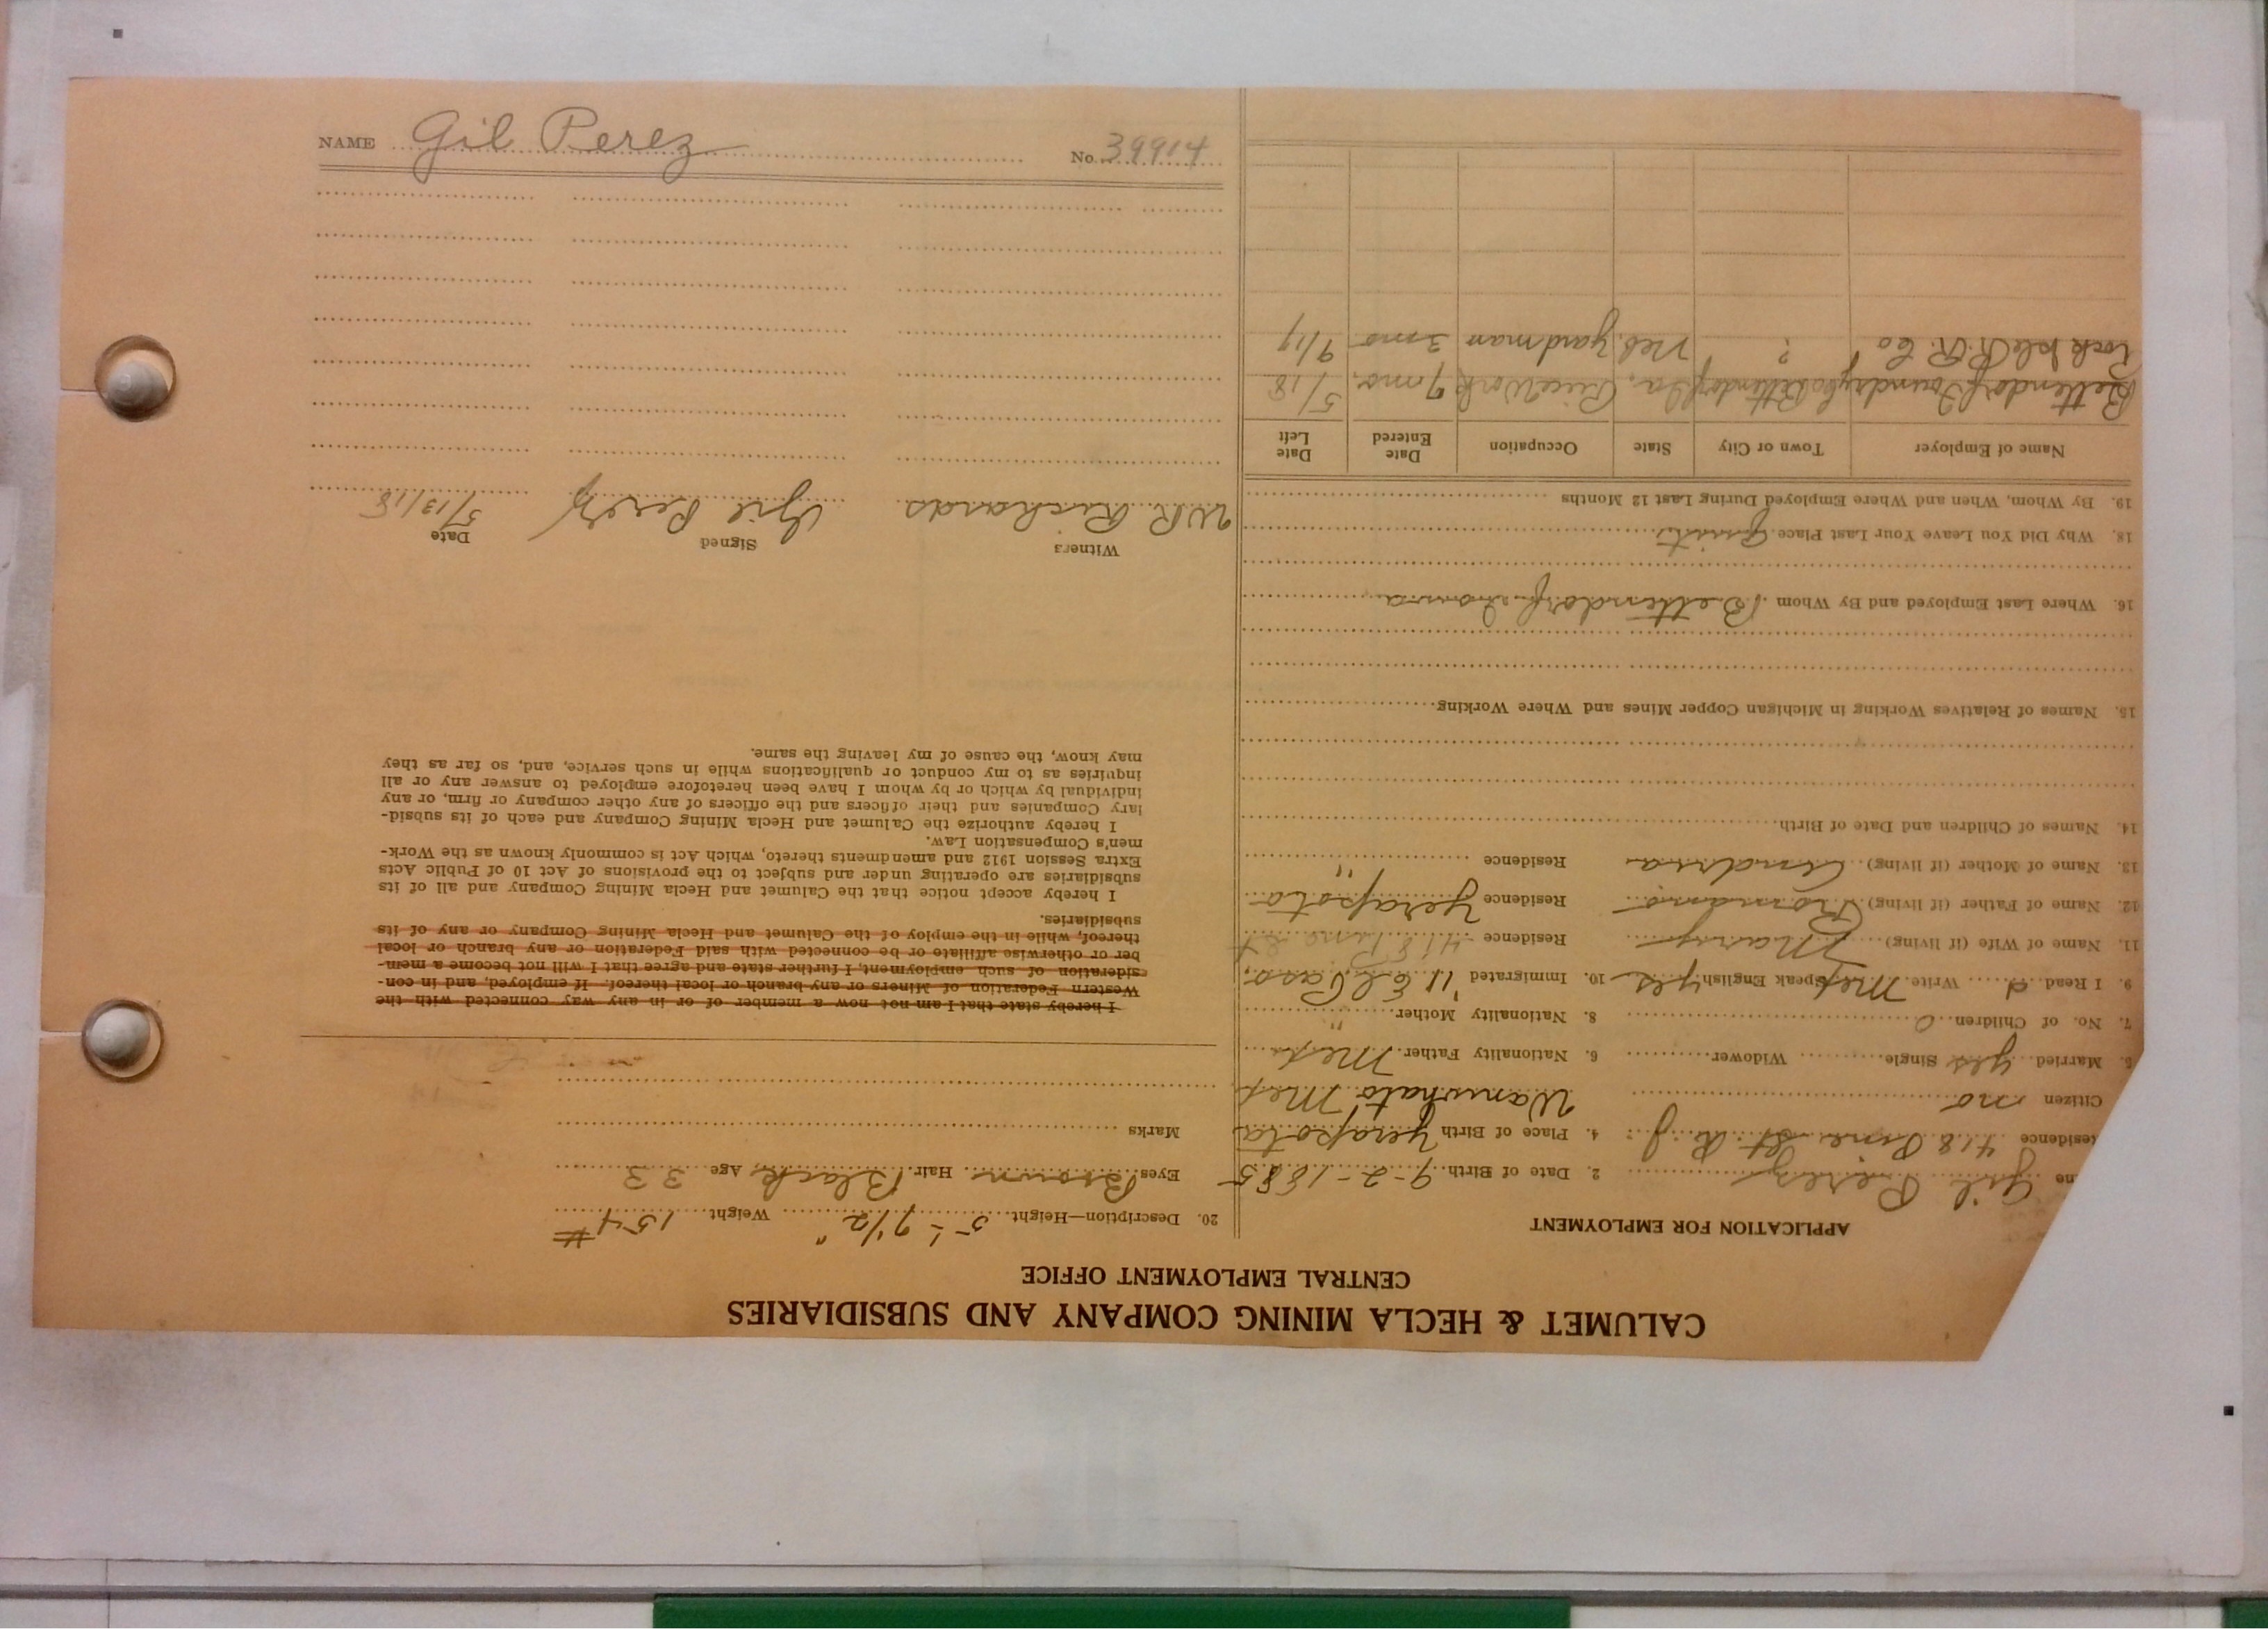 CALUMET & HECLA MINING COMPANY AND SUBSIDIARIES
CENTRAL EMPLOYMENT OFFICE
APPLICATION FOR EMPLOYMENT
me Gil Perez 2. Date of Birth 9-2-1885
Residence 418 Pine St R J 4. Place of Birth Yerapota
Citizen no Wanuhato Mex
5. Married yes Single Widower 6. Nationality Father Mex
7. No. of Children 0 8. Nationality Mother "
9. I Read Write Mex Speak English yes 10. Immigrated '11 El Paso
11. Name of Wife (if living) Mary Residence 418 Pine St
12. Name of Father (if living) Romano Residence Yerapota
13. Name of Mother (if living) Andrea Residence "
14. Names of Children and Date of Birth
15. Names of Relatives Working in Michigan Copper Mines and Where Working
16. Where Last Employed and By Whom Bettendorf Iowa
18. Why Did You Leave Your Last Place Quit
19. By Whom, When and Where Employed During Last 12 Months
Name of Employer Town or City State Occupation Date Entered Date Left
Bettendorf Foundry Co Bettendorf Ia. Piece Work 7 mo. 5/18
Rock Isle R. R. Co ? Neb. Yardman 3 mo 9/17
20. Description—Height 5' - 7 1/2" Weight 154 #
Eyes Brown Hair Black Age 33
Marks
I hereby state that I am not now a member of or in any way connected with the
Western Federation of Miners or any branch or local thereof. If employed, and in con-
sideration of such employment, I further state and agree that I will not become a mem-
ber or otherwise affiliate or be connected with said Federation or any branch or local
thereof, while in the employ of the Calumet and Hecla Mining Company or any of its
subsidiaries.
I hereby accept notice that the Calumet and Hecla Mining Company and all of its
subsidiaries are operating under and subject to the provisions of Act 10 of Public Acts
Extra Session 1912 and amendments thereto, which Act is commonly known as the Work-
men's Compensation Law.
I hereby authorize the Calumet and Hecla Mining Company and each of its subsid-
iary Companies and their officers and the officers of any other company or firm, or any
individual by which or by whom I have been heretofore employed to answer any or all
inquiries as to my conduct or qualifications while in such service, and, so far as they
may know, the cause of my leaving the same.
Witness Signed Date
W R Richards Gil Perez 5/13/18
NAME Gil Perez No. 39914